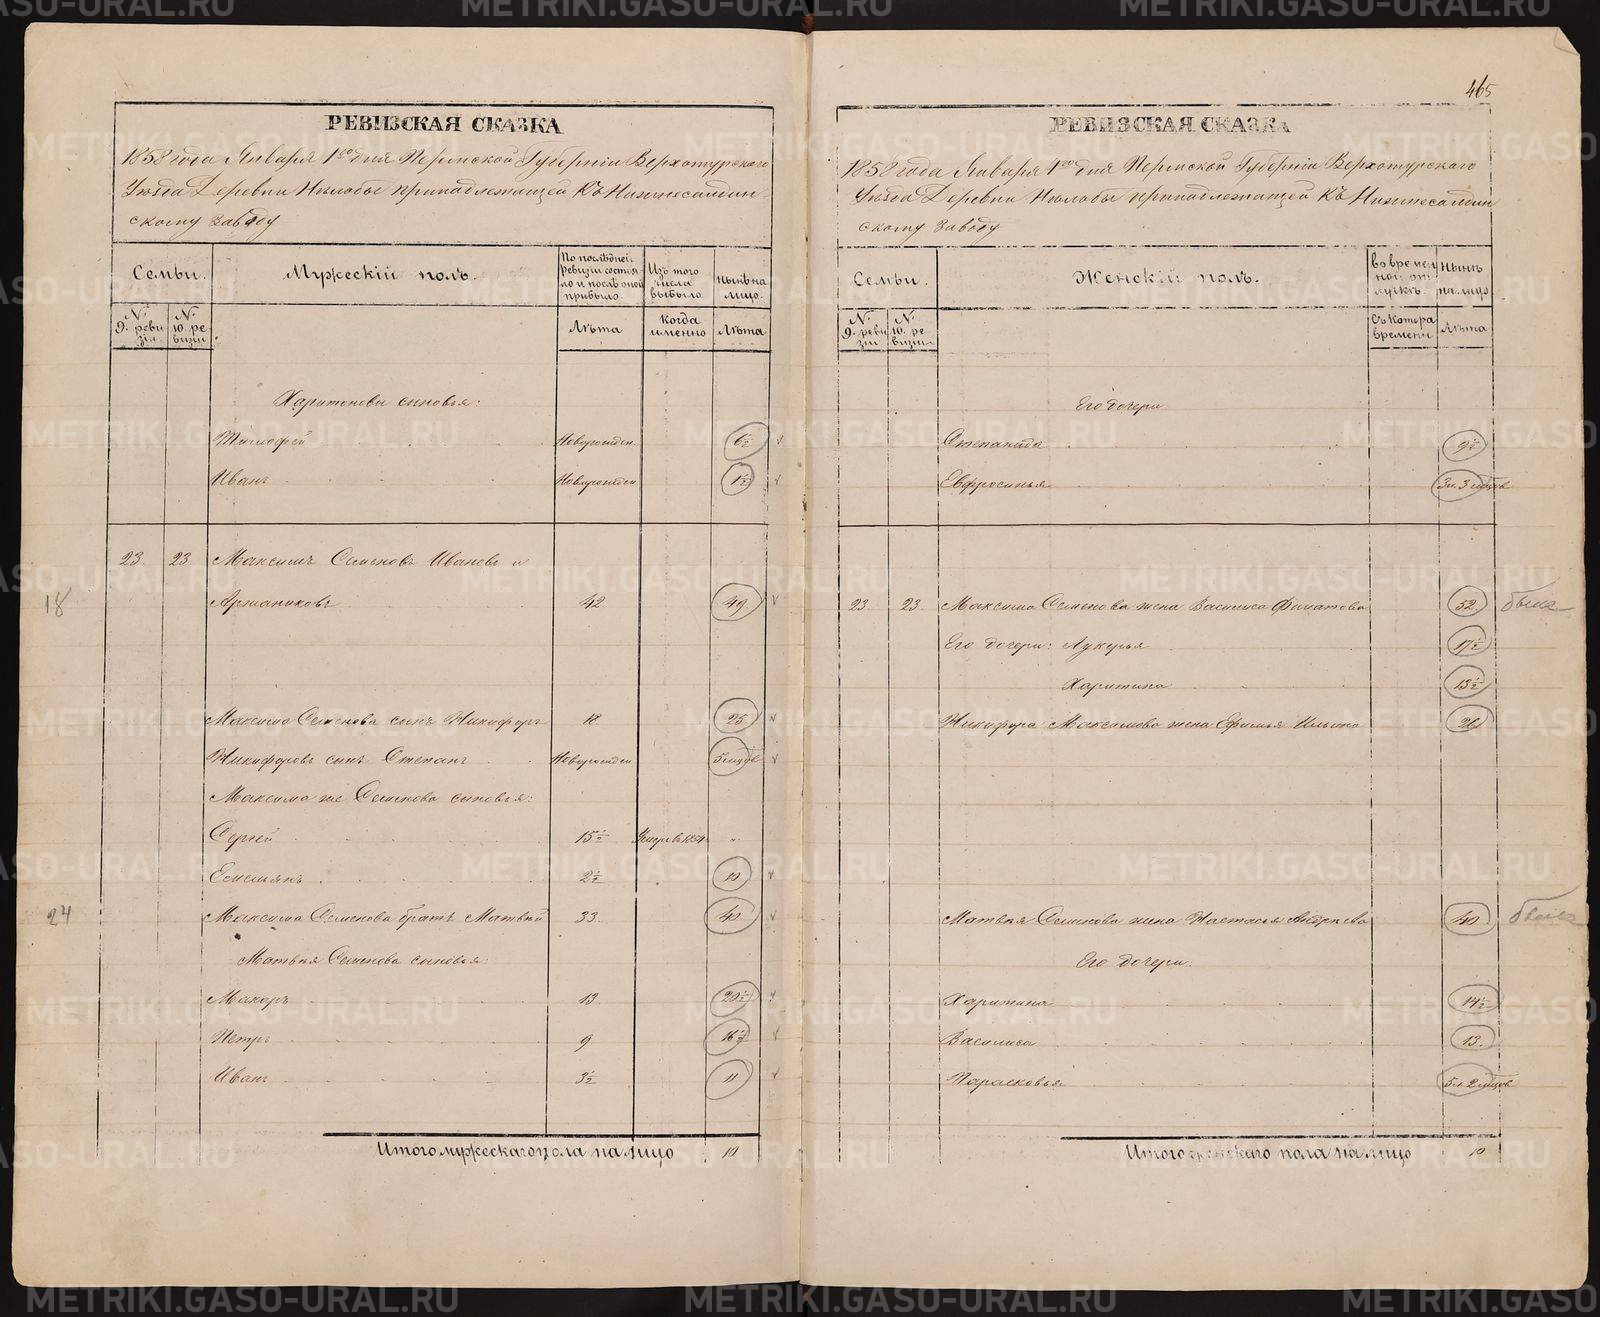 465
РЕВИЗСКАЯ СКАЗКА
1858 года Января 1го дня Пермской Губерніи Верхотурскаго
Уѣзда Деревни Нѣлобы принадлежащей Къ Нижнесалдин-
скому заводу
Семьи.
Мужескій полъ.
По послѣдней ревизіи состояло и послѣ оной прибыло
Изъ того числа выбыло
Нынѣ на лицо.
N. 9. ревизіи
N. 10. ревизіи
Лѣта
Когда именно
Лѣта
Харитоновы сыновья:
Тимофей Новорожден 6½
Иванъ Новорожден 1½
23. 23 Максимъ Семеновъ Ивановъ и
18
42 49
Максима Семенова сынъ Никифоръ 18 25
Никифоровъ сынъ Степанъ Новорожден 5 мцов
Максима же Семенова сыновья:
Сергей 15½ Умеръ в 1854
Емельянъ 2½ 10
24
Максима Семенова братъ Матвей 33. 40
Матвѣя Семенова сыновья:
Макаръ 13. 20½
Петръ 9 16½
Иванъ 3½ 11
Итого мужескаго пола на лицо 10
РЕВИЗСКАЯ СКАЗКА
1858 года Января 1го дня Пермской Губерніи Верхотурскаго
Уѣзда Деревни Нѣлобы принадлежащей Къ Нижнесалдин
скому заводу
Семьи.
Женскій полъ.
во временной отлучкѣ.
Нынѣ на лицо
N. 9. ревизіи
N. 10. ревизіи
Съ котора времени
Лѣта
Его дочери
Степанида 9½
Евфросинья 3 л. 3 мцов
23. 23. Максима Семенова жена Василиса Филатова 52
Его дочери: Лукерья 17½
Харитина 13½
Никифора Максимова жена Ефимья Ильина 26
Матвѣя Семенова жена Настасья Андреева 40
Его дочери:
Харитина 14½
Василиса 13.
Парасковья 5 л 2 мцов
Итого женскаго пола на лицо 10
METRIKI.GASO-URAL.RU